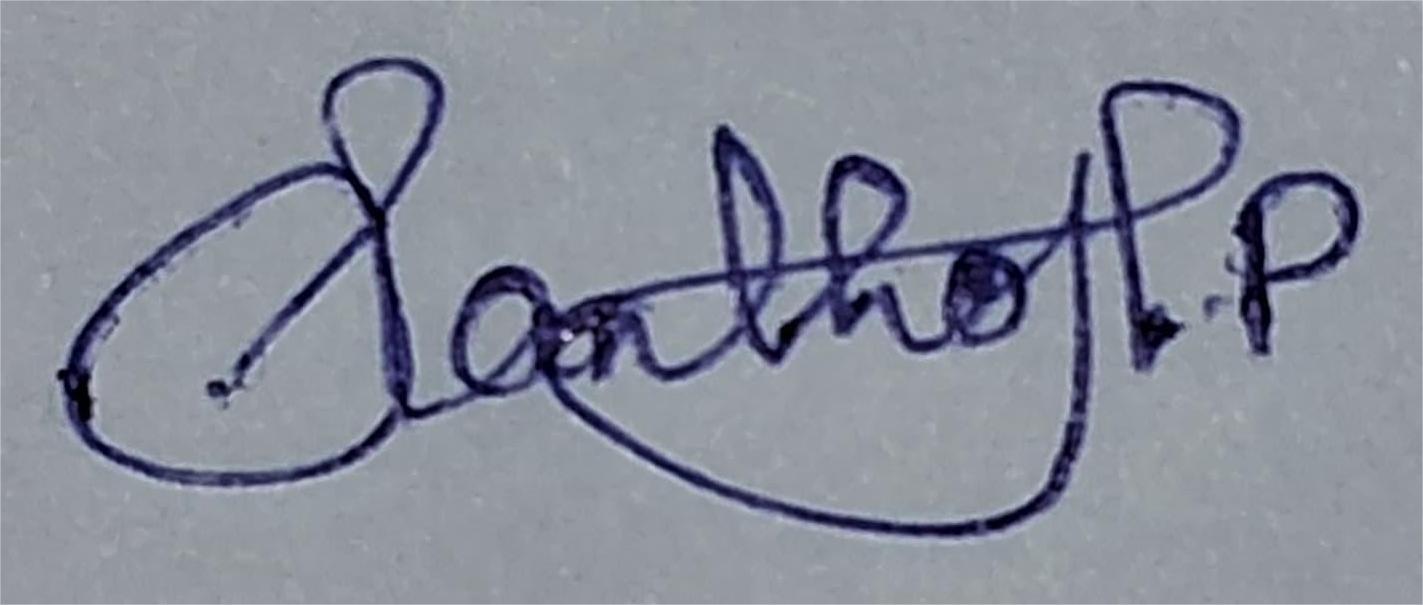 Santhoj P.P